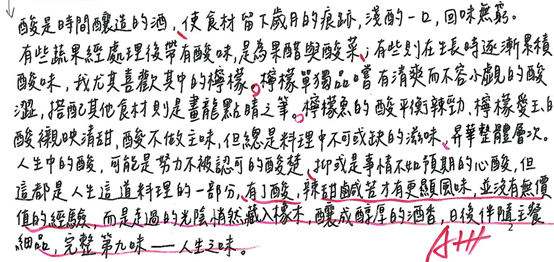 酸是時間釀造的酒,使食材留下歲月的痕跡,淺酌一口,回味無窮。
有些蔬果經處理後帶有酸味,是為果醋與酸菜;有些則在生長時逐漸累積
酸味,我尤其喜歡其中的檸檬。檸檬單獨品嚐有清爽而不容小覷的酸
澀,搭配其他食材則是畫龍點睛之筆。檸檬魚的酸平衡辣勁、檸檬愛玉的
酸襯映清甜,酸不做主味,但總是料理中不可或缺的滋味,昇華整體層次。
人生中的酸,可能是努力不被認可的酸楚、抑或是事情不如預期的心酸,但
這都是人生這道料理的一部分,有了酸,辣甜鹹苦才有更顯風味,並沒有無價
值的經驗,而是走過的光陰悄然藏入橡木,釀成醇厚的酒香,日後伴隨主餐
細品,完整第九味——人生之味。
A++
2